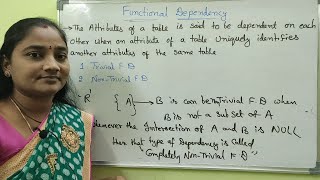 Functional Dependency
→ The Attributes of a table is said to be dependent on each
other when an attribute of a table uniquely identifies
another attributes of the same table
1. Trivial F D
2 Non Trivial F D
R { A → B is can be Trivial F D when
B is not a subset of A
whenever the Intersection of A and B is NULL
then that type of Dependency is called
Completely Non-Trivial F D"